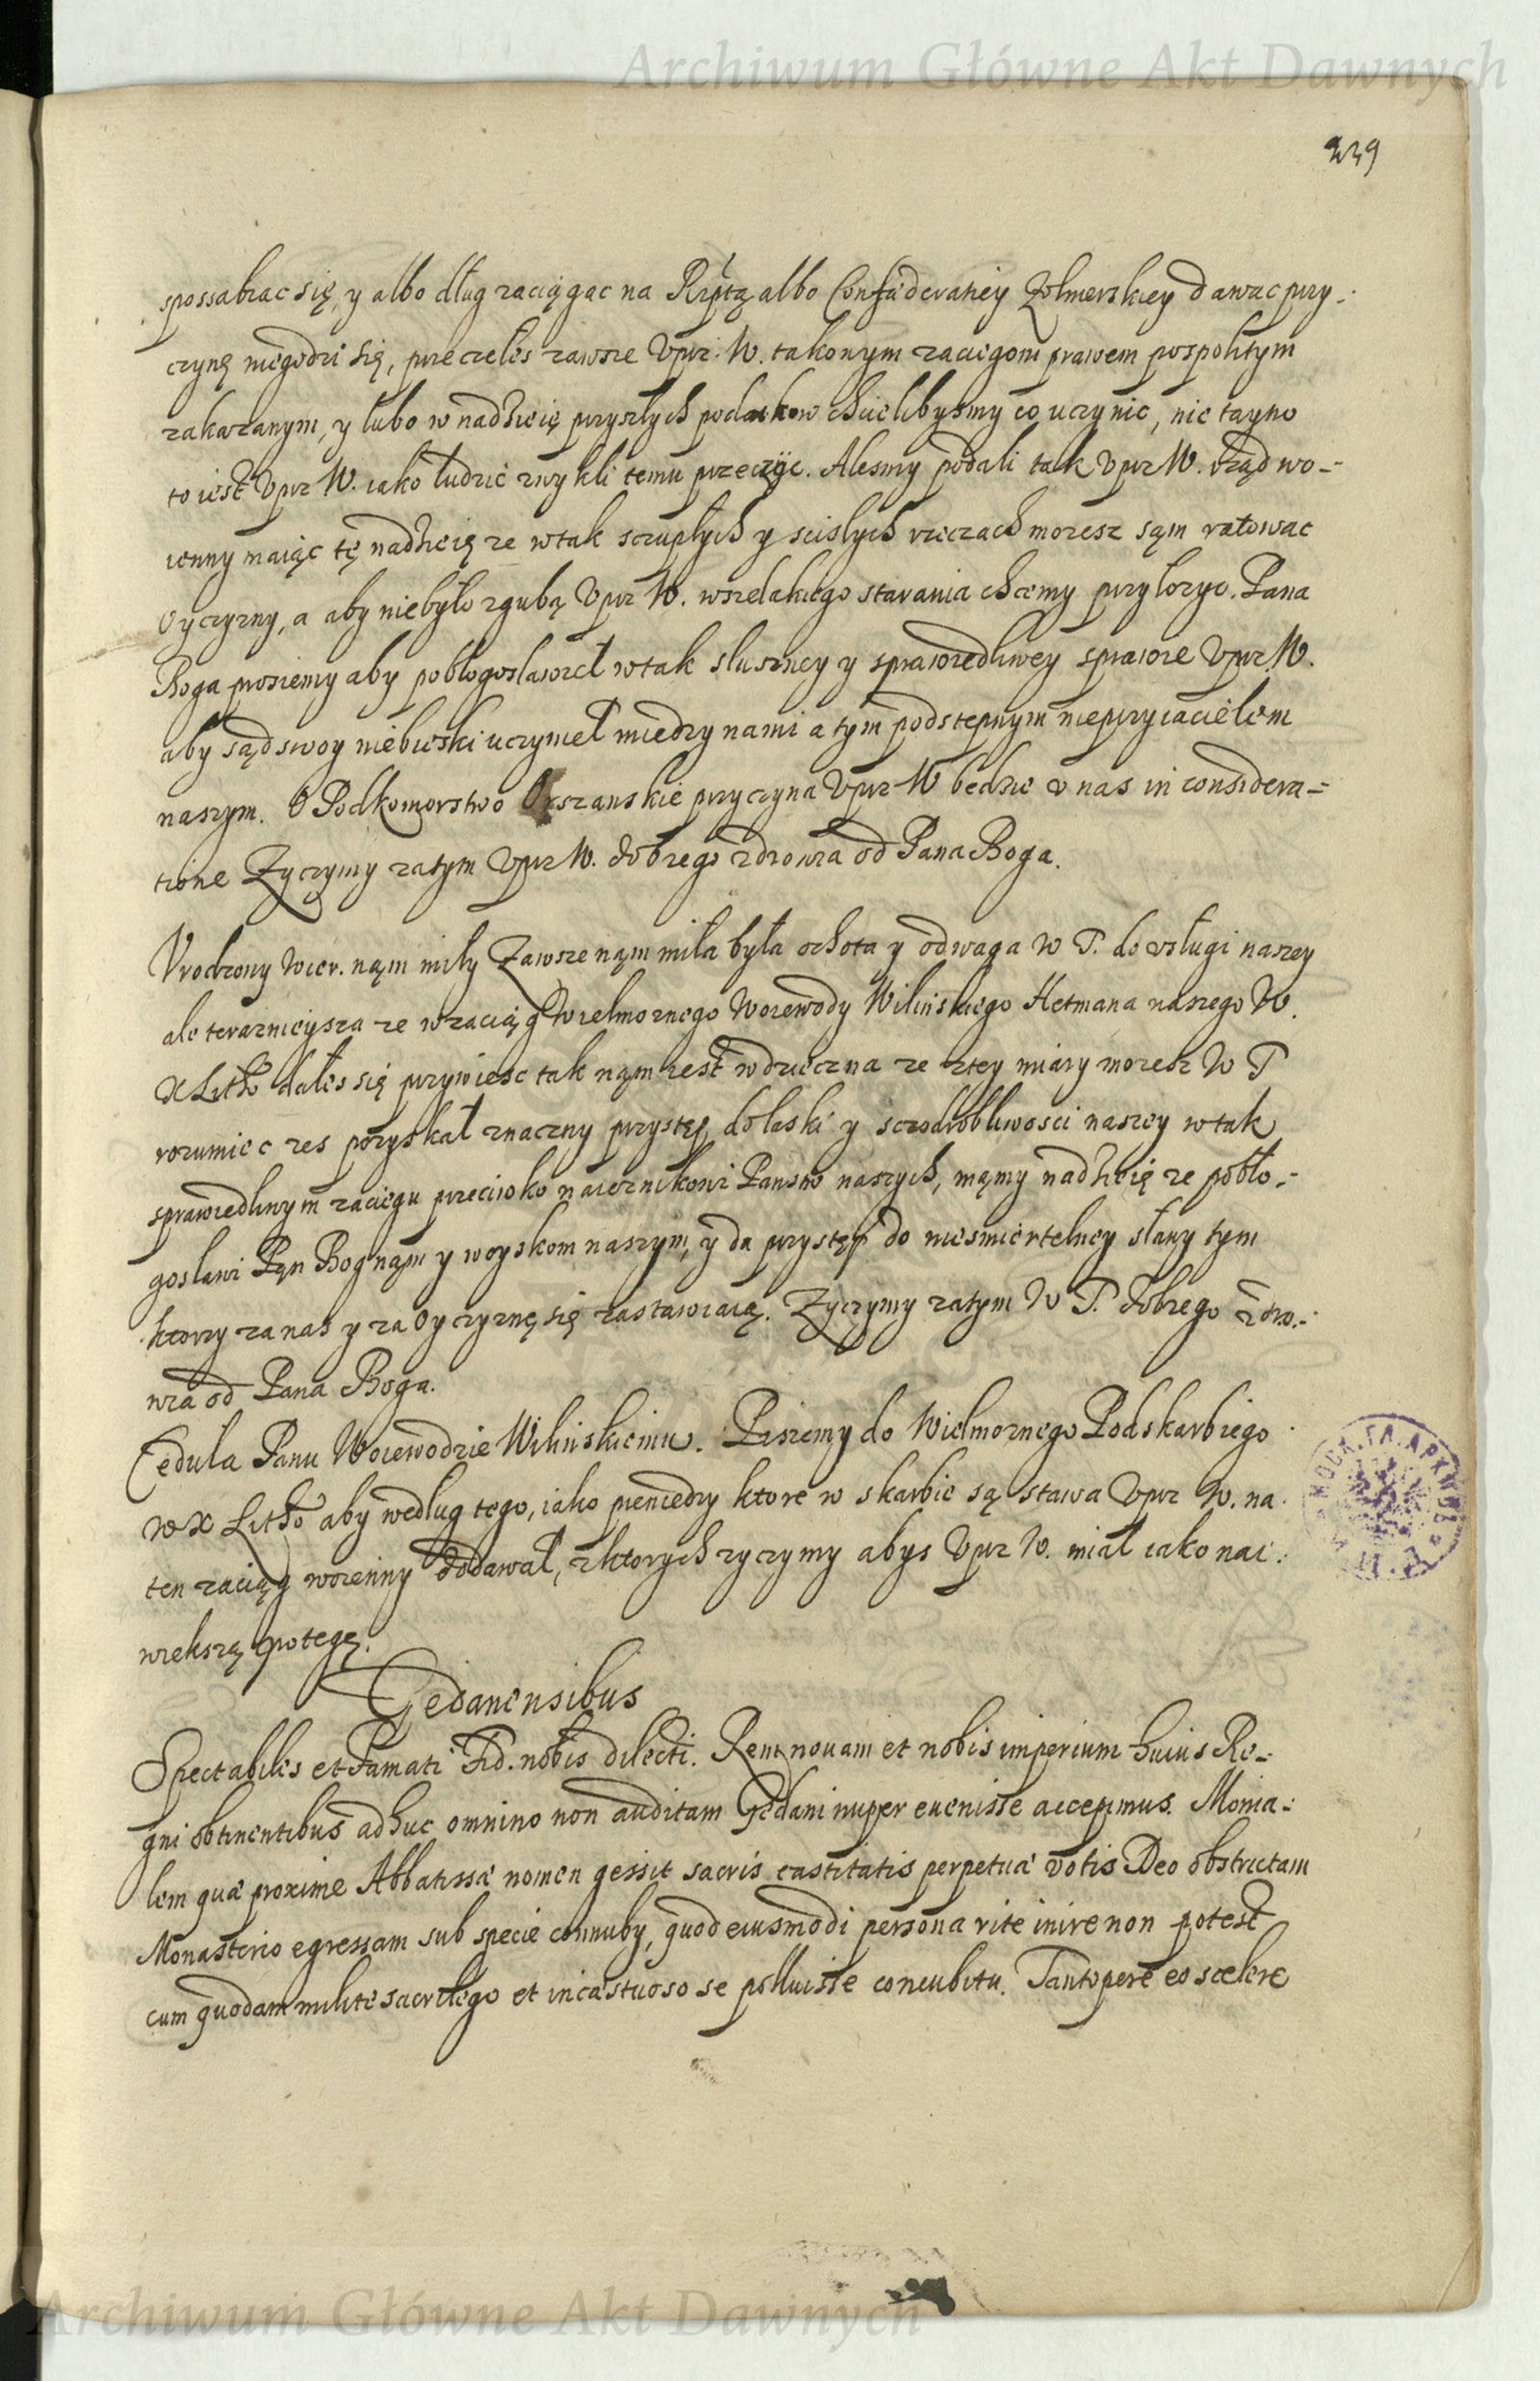 Archiwum Główne Akt Dawnych
229
spossabiac się, y albo dług zaciągac na Rzptą albo Confæderatiey Zołnierskiey dawac przy-
czynę niegodzi się, przeczeles zawsze Vprz. W. takowym zaciągom prawem pospolitym
zakazanym, y lubo w nadzieię przyszłych podatkow chcielibysmy co uczynic, nie tayno
to iest Vprz W. iako ludzie zwykli temu przeczyc. Alesmy podali tak Vprz W. rząd wo-
ienny maiąc tę nadzieię ze wtak sczupłych y scisłych rzeczach mozesz sąm ratowac
Oyczyzny, a aby niebyło zgubą Vprz W. wszelakiego starania chcemy przylozyc. Pana
Boga prosiemy aby pobłogosławieł wtak sluszney y sprawiedliwey sprawie Vprz W.
aby sąd swoy niebieski uczynieł miedzy nami a tym podstępnym nieprzyiacielem
naszym. O Podkomorstwo Orszanskie przyczyna Vprz W bedzie v nas in considera-
tione Zyczymy zatym Vprz W. dobrego zdrowia od Pana Boga.
Vrodzony Wier. nąm miły Zawsze nąm miła była ochota y odwaga W T. do vsługi naszey
ale teraznieysza ze w zaciąg Wielmoznego Woiewody Wilinskiego Hetmana naszego W.
X Litho dałes się przywiesc tak nąm iest wdzieczna ze ztey miary mozesz W T
rozumiec zes pozyskał znaczny przystęp do łaski y sczodrobliwosci naszey wtak
sprawiedliwym zaciegu przeciwko naieznikowi Panstw naszych, mąmy nadzieię ze pobło-
gosławi Pąn Bog nąm y woyskom naszym, y da przystęp do niesmiertelney sławy tym
ktorzy za nas y za Oyczyznę się zastawiaią. Zyczymy zatym W T. dobrego zdro-
wia od Pana Boga.
Cedula Panu Woiewodzie Wilinskiemu. Piszemy do Wielmoznego Podskarbiego
W X Litho aby według tego, iako pieniedzy ktore w skarbie są stawa Vprz W. na
ten zaciąg woienny dodawał, z ktorych zyczymy abys Vprz W. miał iako nai-
wiekszą potegę.
Gedanensibus
Spectabiles et Famati Fid. nobis dilecti. Rem novam et nobis imperium huius Re-
gni obtinentibus adhuc omnino non auditam Gedani nuper evenisse accepimus. Monia-
lem quæ proxime Abbatissæ nomen gessit sacris castitatis perpetuæ votis Deo obstrictam
Monasterio egressam sub specie connuby, quod eiusmodi persona rite inire non potest
cum quodam milite sacrilego et incæstuoso se polluisse concubitu. Tantopere eo scelere
Archiwum Główne Akt Dawnych